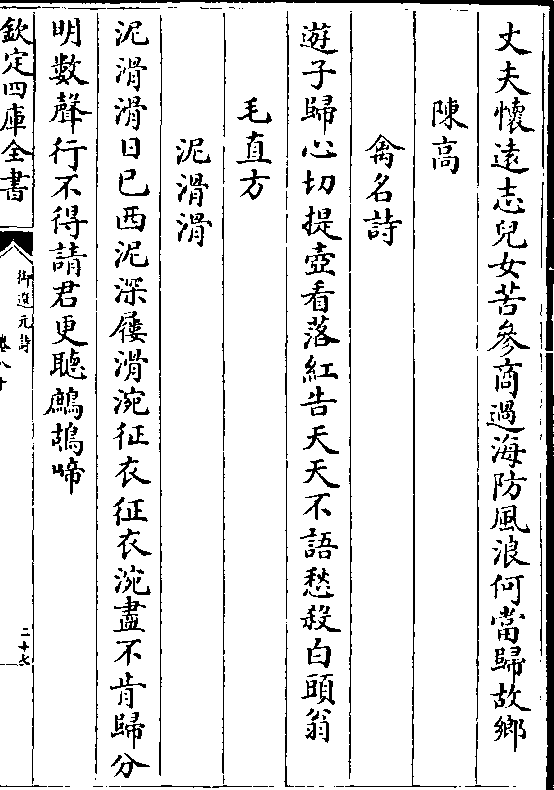 丈夫懷遠志兒女苦參商過海防風浪何當歸故鄉
陳高
禽名詩
遊子歸心切提壺看落紅告天天不語愁殺白頭翁
毛直方
泥滑滑
泥滑滑日已西泥深屨滑涴征衣征衣涴盡不肯歸分
明數聲行不得請君更聽鷓鴣啼
欽定四庫全書
御選元詩
卷八十
二十七